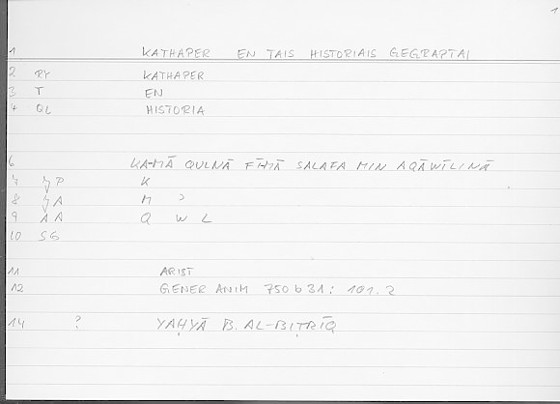 1
1 KATHAPER EN TAIS HISTORIAIS GEGRAPTAI
2 RY KATHAPER
3 T EN
4 QL HISTORIA
6 KA-MĀ QULNĀ FĪ-MĀ SALAFA MIN AQĀWĪLINĀ
7 P K
8 A M
9 AA Q W L
10 SG
11 ARIST
12 GENER ANIM 750 b 31 : 191.2
14 ? YAḤYĀ B. AL-BIṬRĪQ